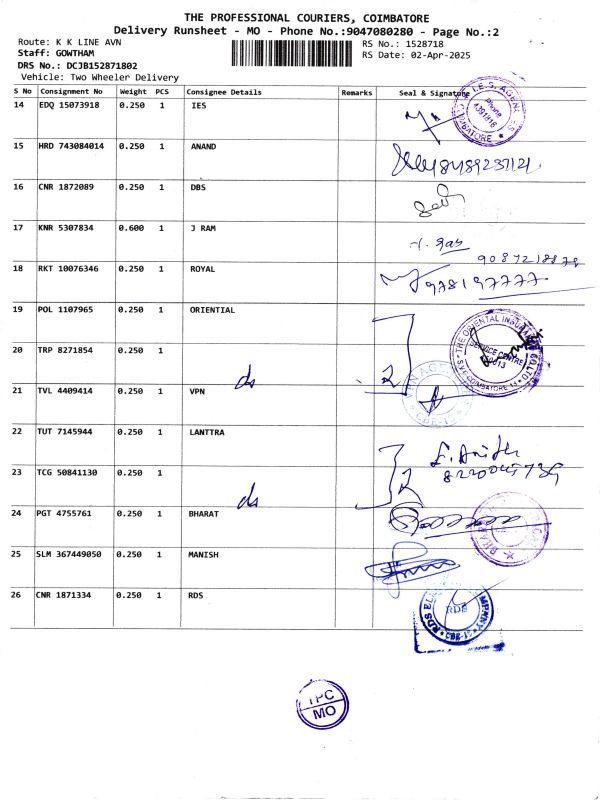 THE PROFESSIONAL COURIERS, COIMBATORE
Delivery Runsheet - MO - Phone No.:9047080280 - Page No.:2
Route: K K LINE AVN
RS No.: 1528718
Staff: GOWTHAM
RS Date: 02-Apr-2025
DRS No.: DCJB152871802
Vehicle: Two Wheeler Delivery
S No Consignment No Weight PCS Consignee Details Remarks Seal & Signature
14 EDQ 15073918 0.250 1 IES
I.E.S. AGENC Phone 4391816 COIMBATORE
15 HRD 743084014 0.250 1 ANAND
16 CNR 1872089 0.250 1 DBS
17 KNR 5307834 0.600 1 J RAM
18 RKT 10076346 0.250 1 ROYAL
19 POL 1107965 0.250 1 ORIENTIAL
THE ORIENTAL INSU SERVICE CENTRE CO.LTD
20 TRP 8271854 0.250 1
do
21 TVL 4409414 0.250 1 VPN
VPN AGEN CBE-12
22 TUT 7145944 0.250 1 LANTTRA
23 TCG 50841130 0.250 1
do
24 PGT 4755761 0.250 1 BHARAT
25 SLM 367449050 0.250 1 MANISH
26 CNR 1871334 0.250 1 RDS
RDS CBE-12
TPC
MO